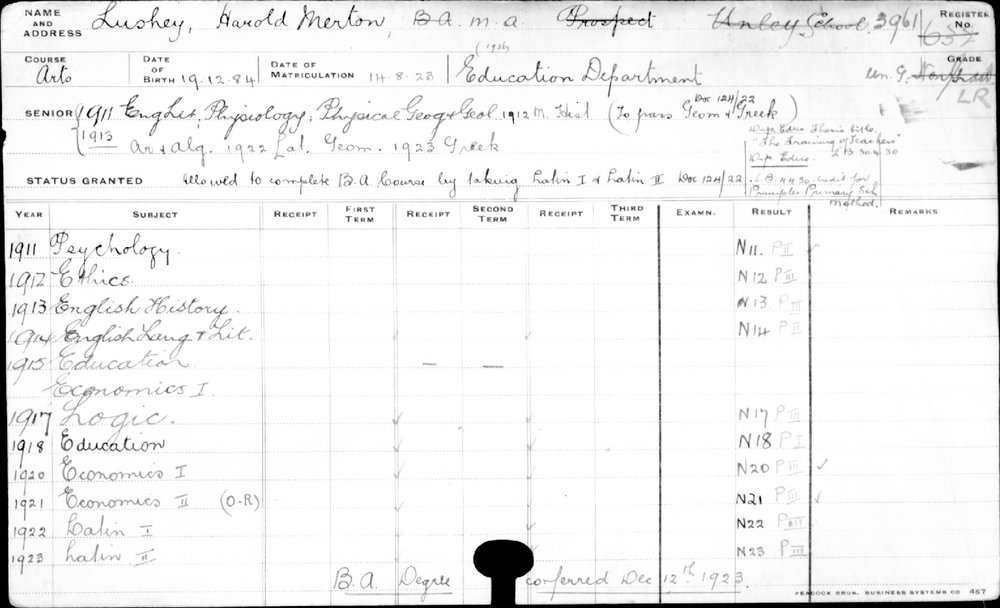 NAME AND ADDRESS Lushey, Harold Merton, B.A. M.A. Prospect Unley School, 3961 REGISTER No. 637
(1926)
COURSE Arts DATE OF BIRTH 19.12.84 DATE OF MATRICULATION 14.8.23 Education Department GRADE
LR
SENIOR 1911 Eng Lit, Physiology, Physical Geog & Geol. 1912 M. Hist (To pass Geom & Greek) Doc 124/22
1913 Ar & Alg. 1922 Lat. Geom. 1923 Greek
Dip. Educ. Thesis title,
"The Training of Teachers"
Dip. Educ.
STATUS GRANTED Allowed to complete B.A Course by taking Latin I & Latin II Doc 124/22
credit for
Principles Primary Sch
Method.
YEAR SUBJECT RECEIPT FIRST TERM RECEIPT SECOND TERM RECEIPT THIRD TERM EXAMN. RESULT REMARKS
1911 Psychology. N11. P II ✓
1912 Ethics. N12 P III
1913 English History. N13. P III
1914 English Lang & Lit. N14 P II
1915 Education — —
Economics I.
1917 Logic. N17 P III
1918 Education N18 P I
1920 Economics I N20 P III ✓
1921 Economics II (O-R) N21 P III ✓
1922 Latin I N22 P III
1923 Latin II N23 P III
B.A. Degree conferred Dec 12th 1923.
PEACOCK BROS. BUSINESS SYSTEMS CO 457